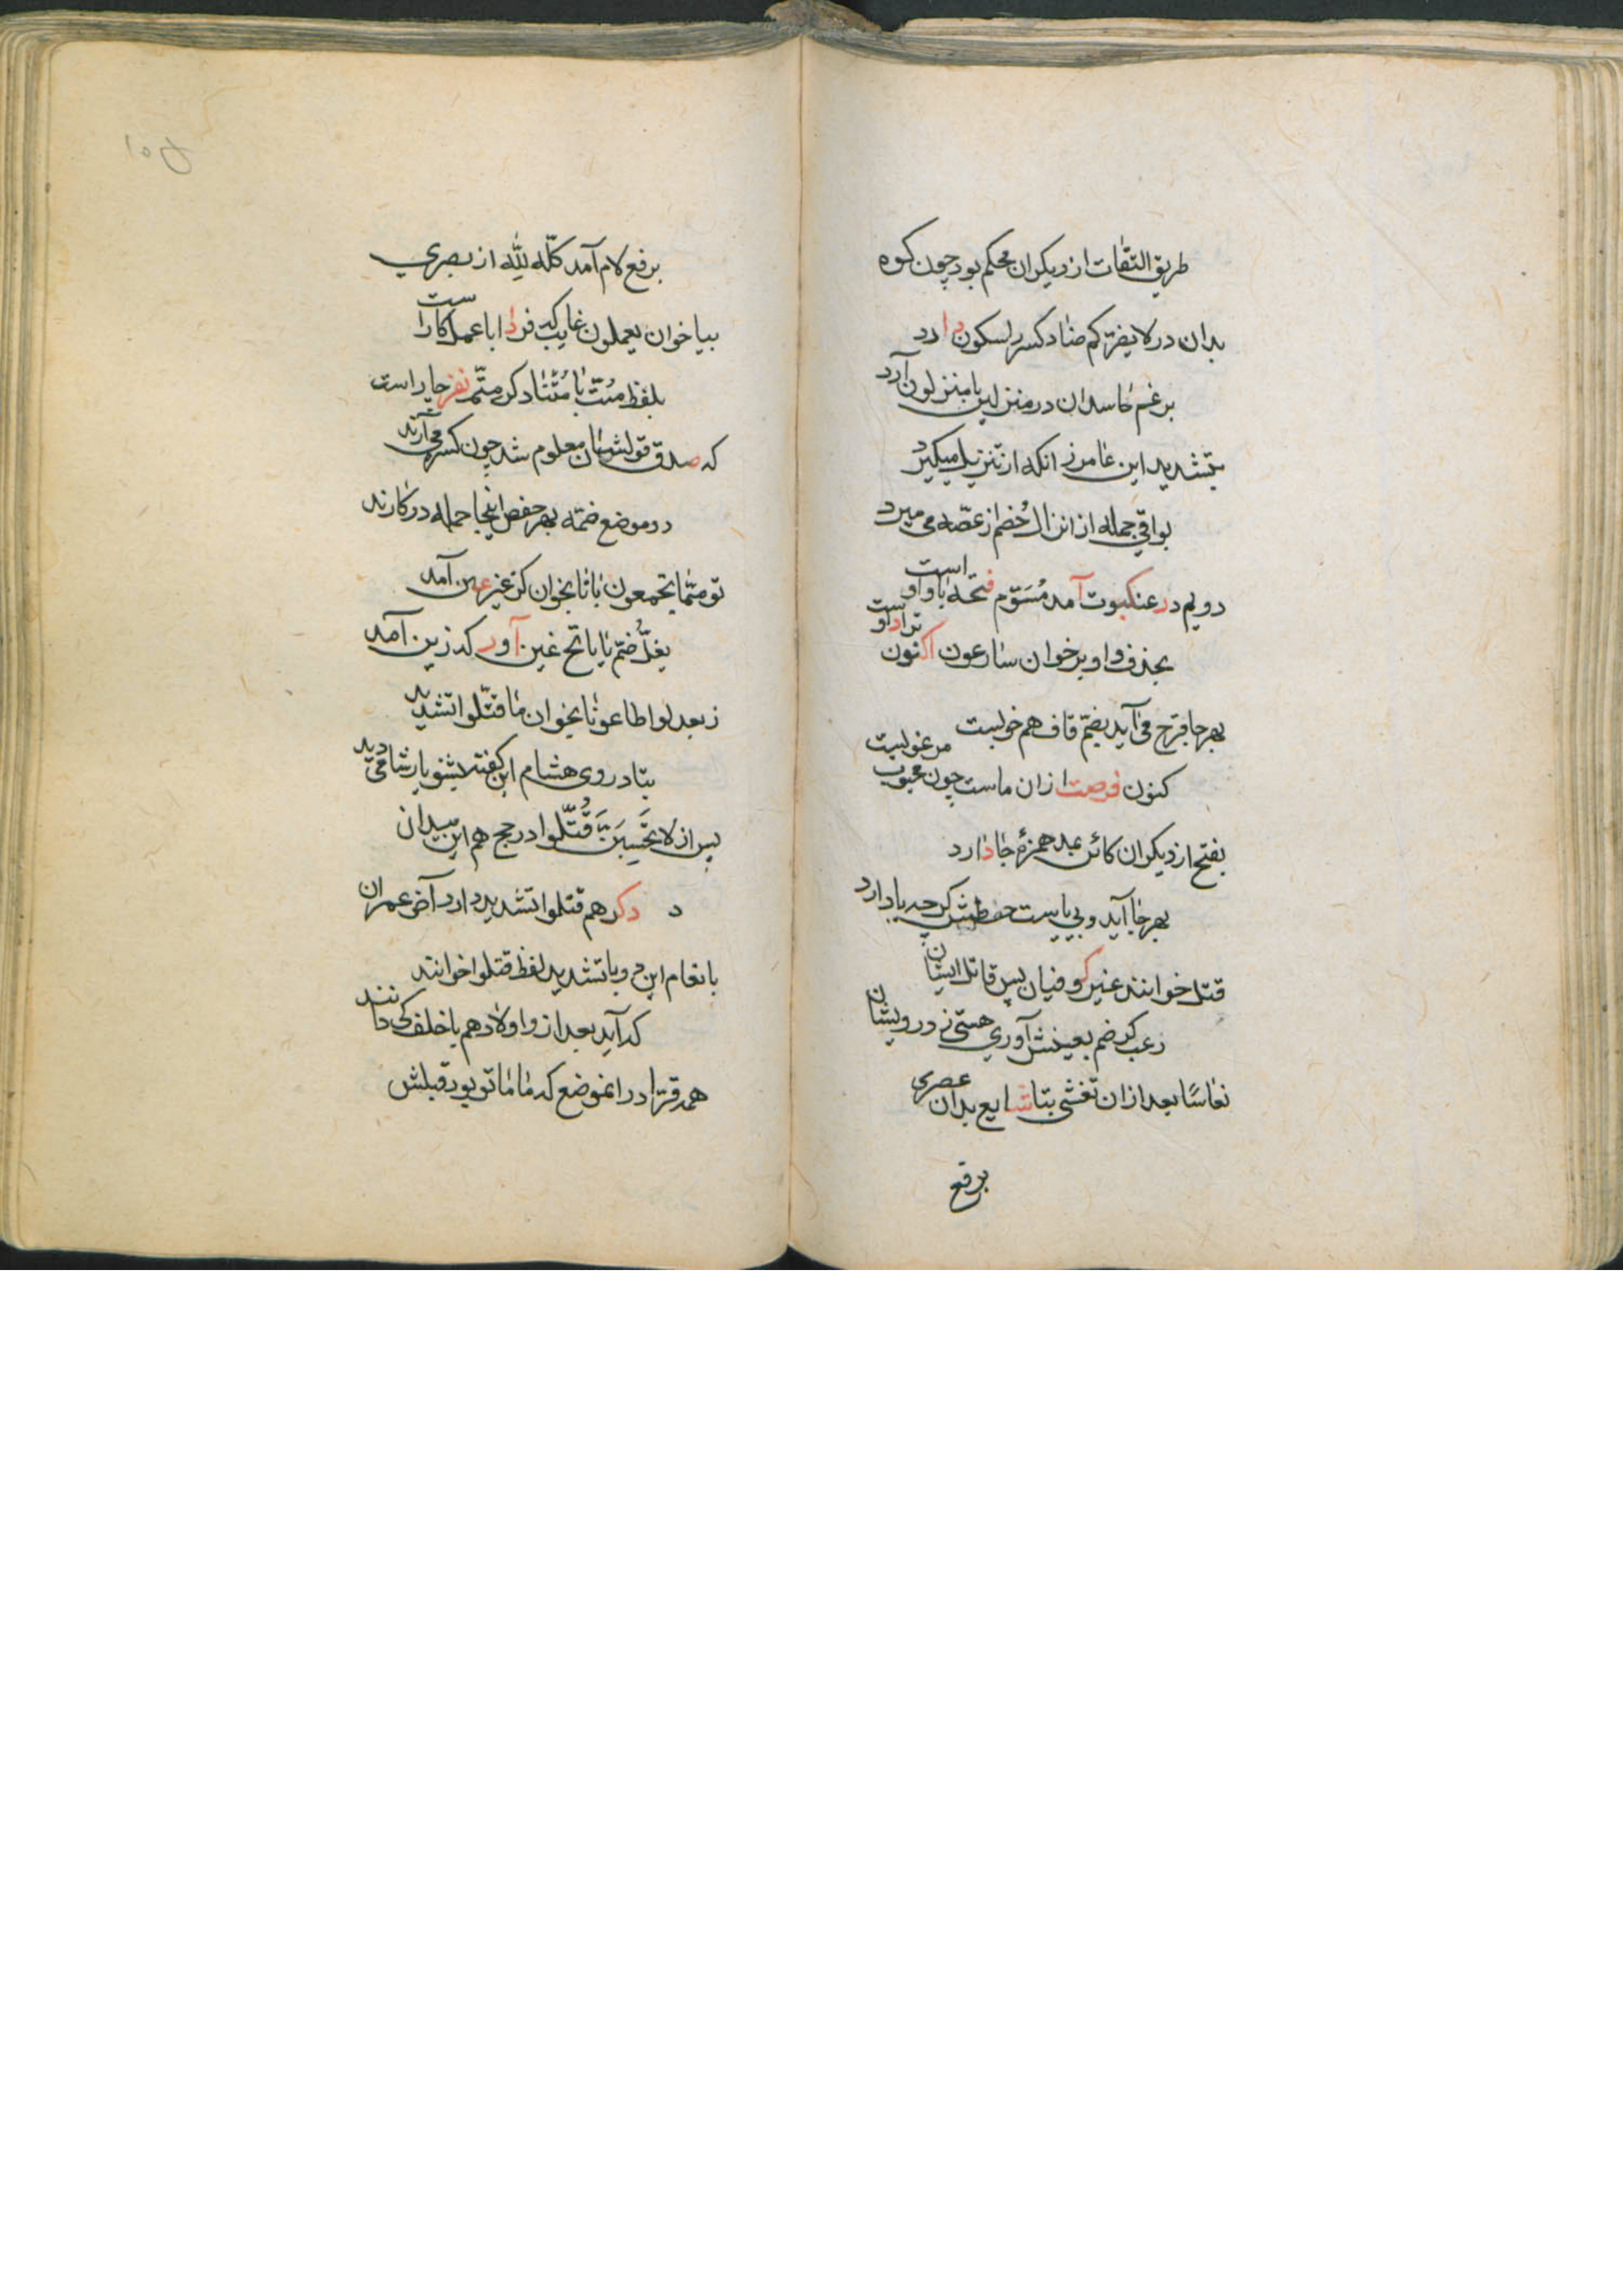 طریق التقات از دیکران محکم بود چون کوه
بدان در لا یضرّکم ضاد کسر لسکون دارد
برغم حاسدان در منزلین با منزلون آرد
بتشدید ابن عامر زانکه از تنزیل میکیرد
بواقی جمله از انزال خُصم از غصّه می میرد
دویم در عنکبوت آمد مُسَوّم فتحه با واو است
بحذف واو بر خوان سارعون اکنون ترا داوست
بهر جا قرح می آید بضمّ قاف هم خوبست
کنون فرصت ازان ماست چون محبوب مرغوبست
بفتح از دیکران کائن بمد همزهٔ جا دارد
بهر جا آید و بی یاست حفظش کر چه یا دارد
قتل خوانند غیر کوفیان پس قاتل ایشان
رعب کر ضم بعینش آوری هستی ز درویشان
نعاسًا بعد ازان تغشی بتا شایع بدان عصری
برفع
برفع لام آمد کلّه للّٰه از بصری
بیا خوان یعملون غایب که فردا با عمل کار است
بلفظ مُتّ با مُتنا دکر مِتّم نفر چار است
که صدق قولشان معلوم شد چون کسره می آرند
دو موضع ضمّه بهر حفص اینجا جمله در کارند
تو ممّا یجمعون با تا بخوان کز غیر عین آمد
یغلّ ضمّ یا با فتح غین آور که زین آمد
ز بعد لو اطاعونا بخوان ما قتّلوا تشدید
بتا در وی هشام این کفته بشنو یار شامی دید
پس از لا تَحْسَبَنَّ قُتّلوا در حج هم این میدان
د دکر هم قتلوا تشدید دارد آخر عمران
با نعام این دو با تشدید لفظ قتلوا خوانند
که آید بعد ازو اولاد هم با خلف کی دانند
همه قرّا در انموضع که ما ماتو بود قبلش